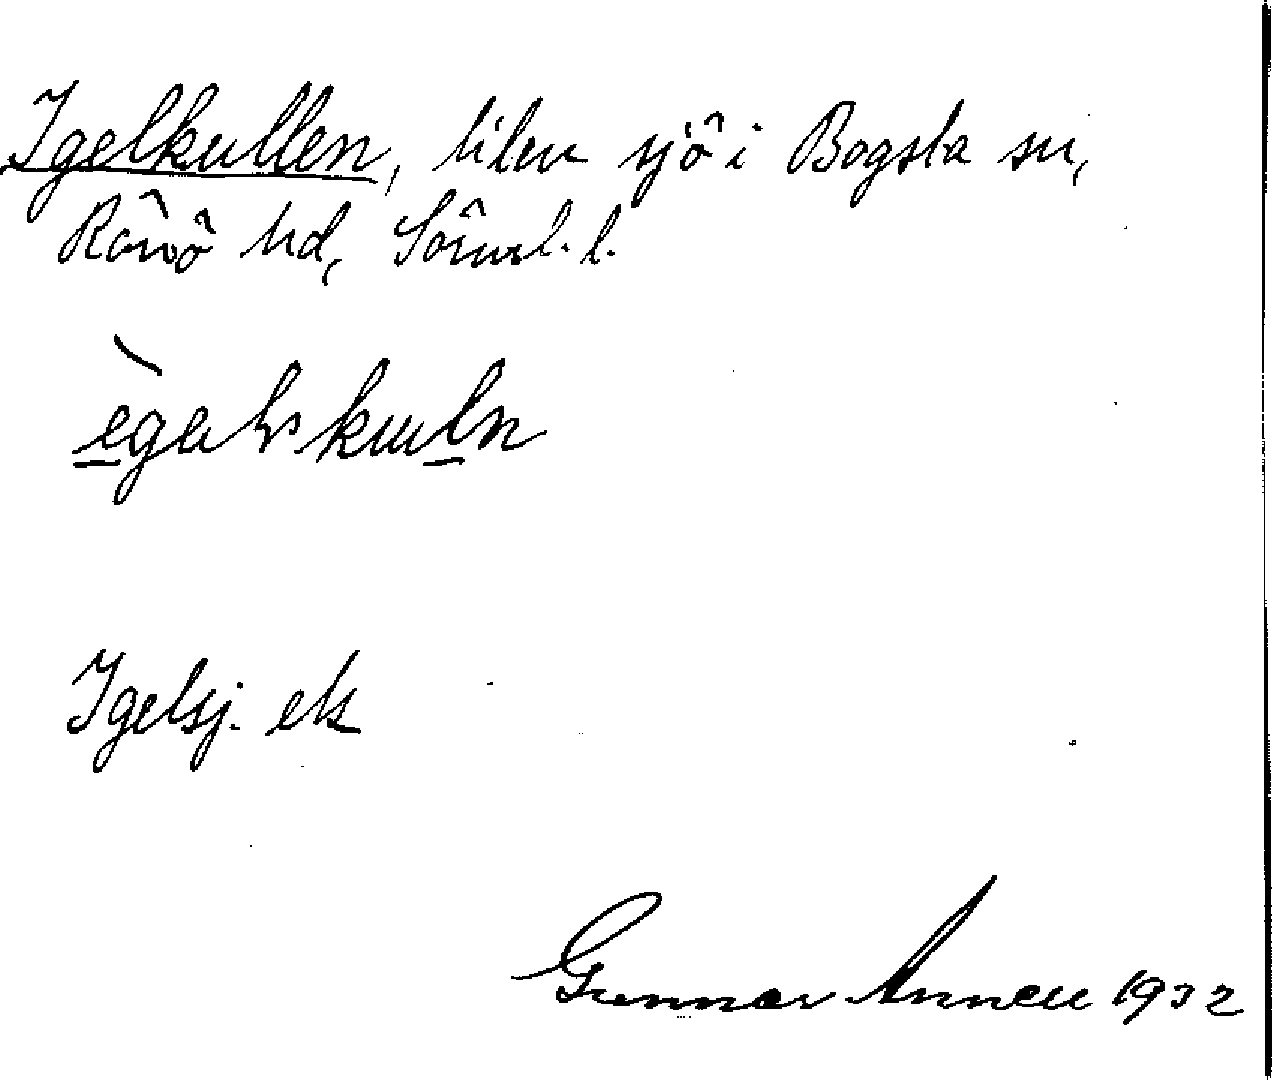 Igelkullen, liten sjö i Bogsta sn,
Rönö hd, Sörml. l.
Igelsj. ek
Gunnar Annell 1932